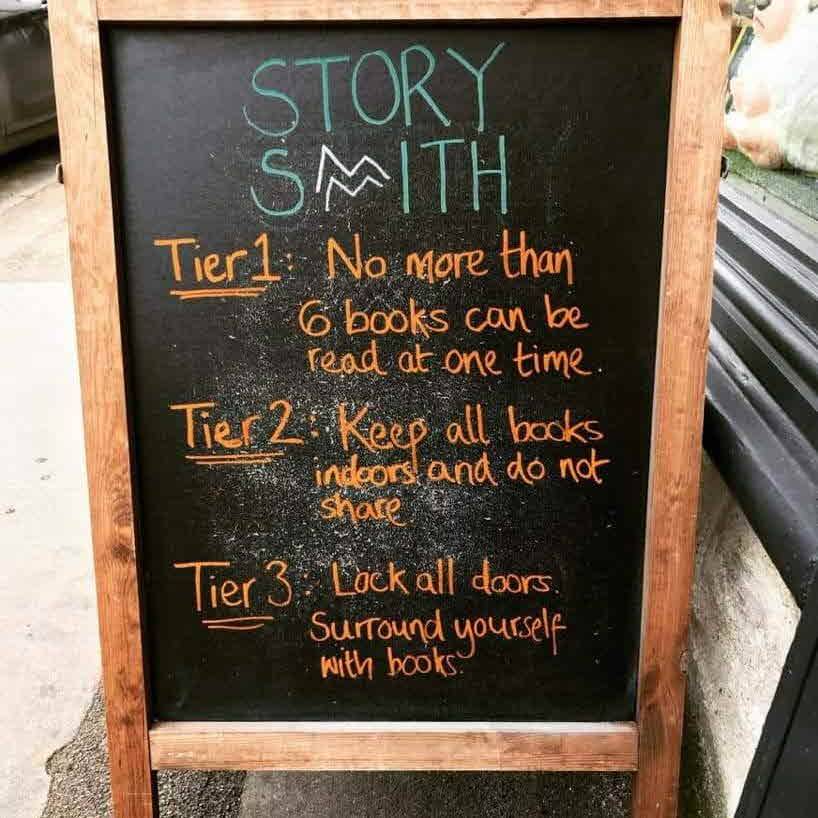 STORY
SMITH
Tier 1: No more than
6 books can be
read at one time.
Tier 2: Keep all books
indoors and do not
share
Tier 3: Lock all doors.
Surround yourself
with books.